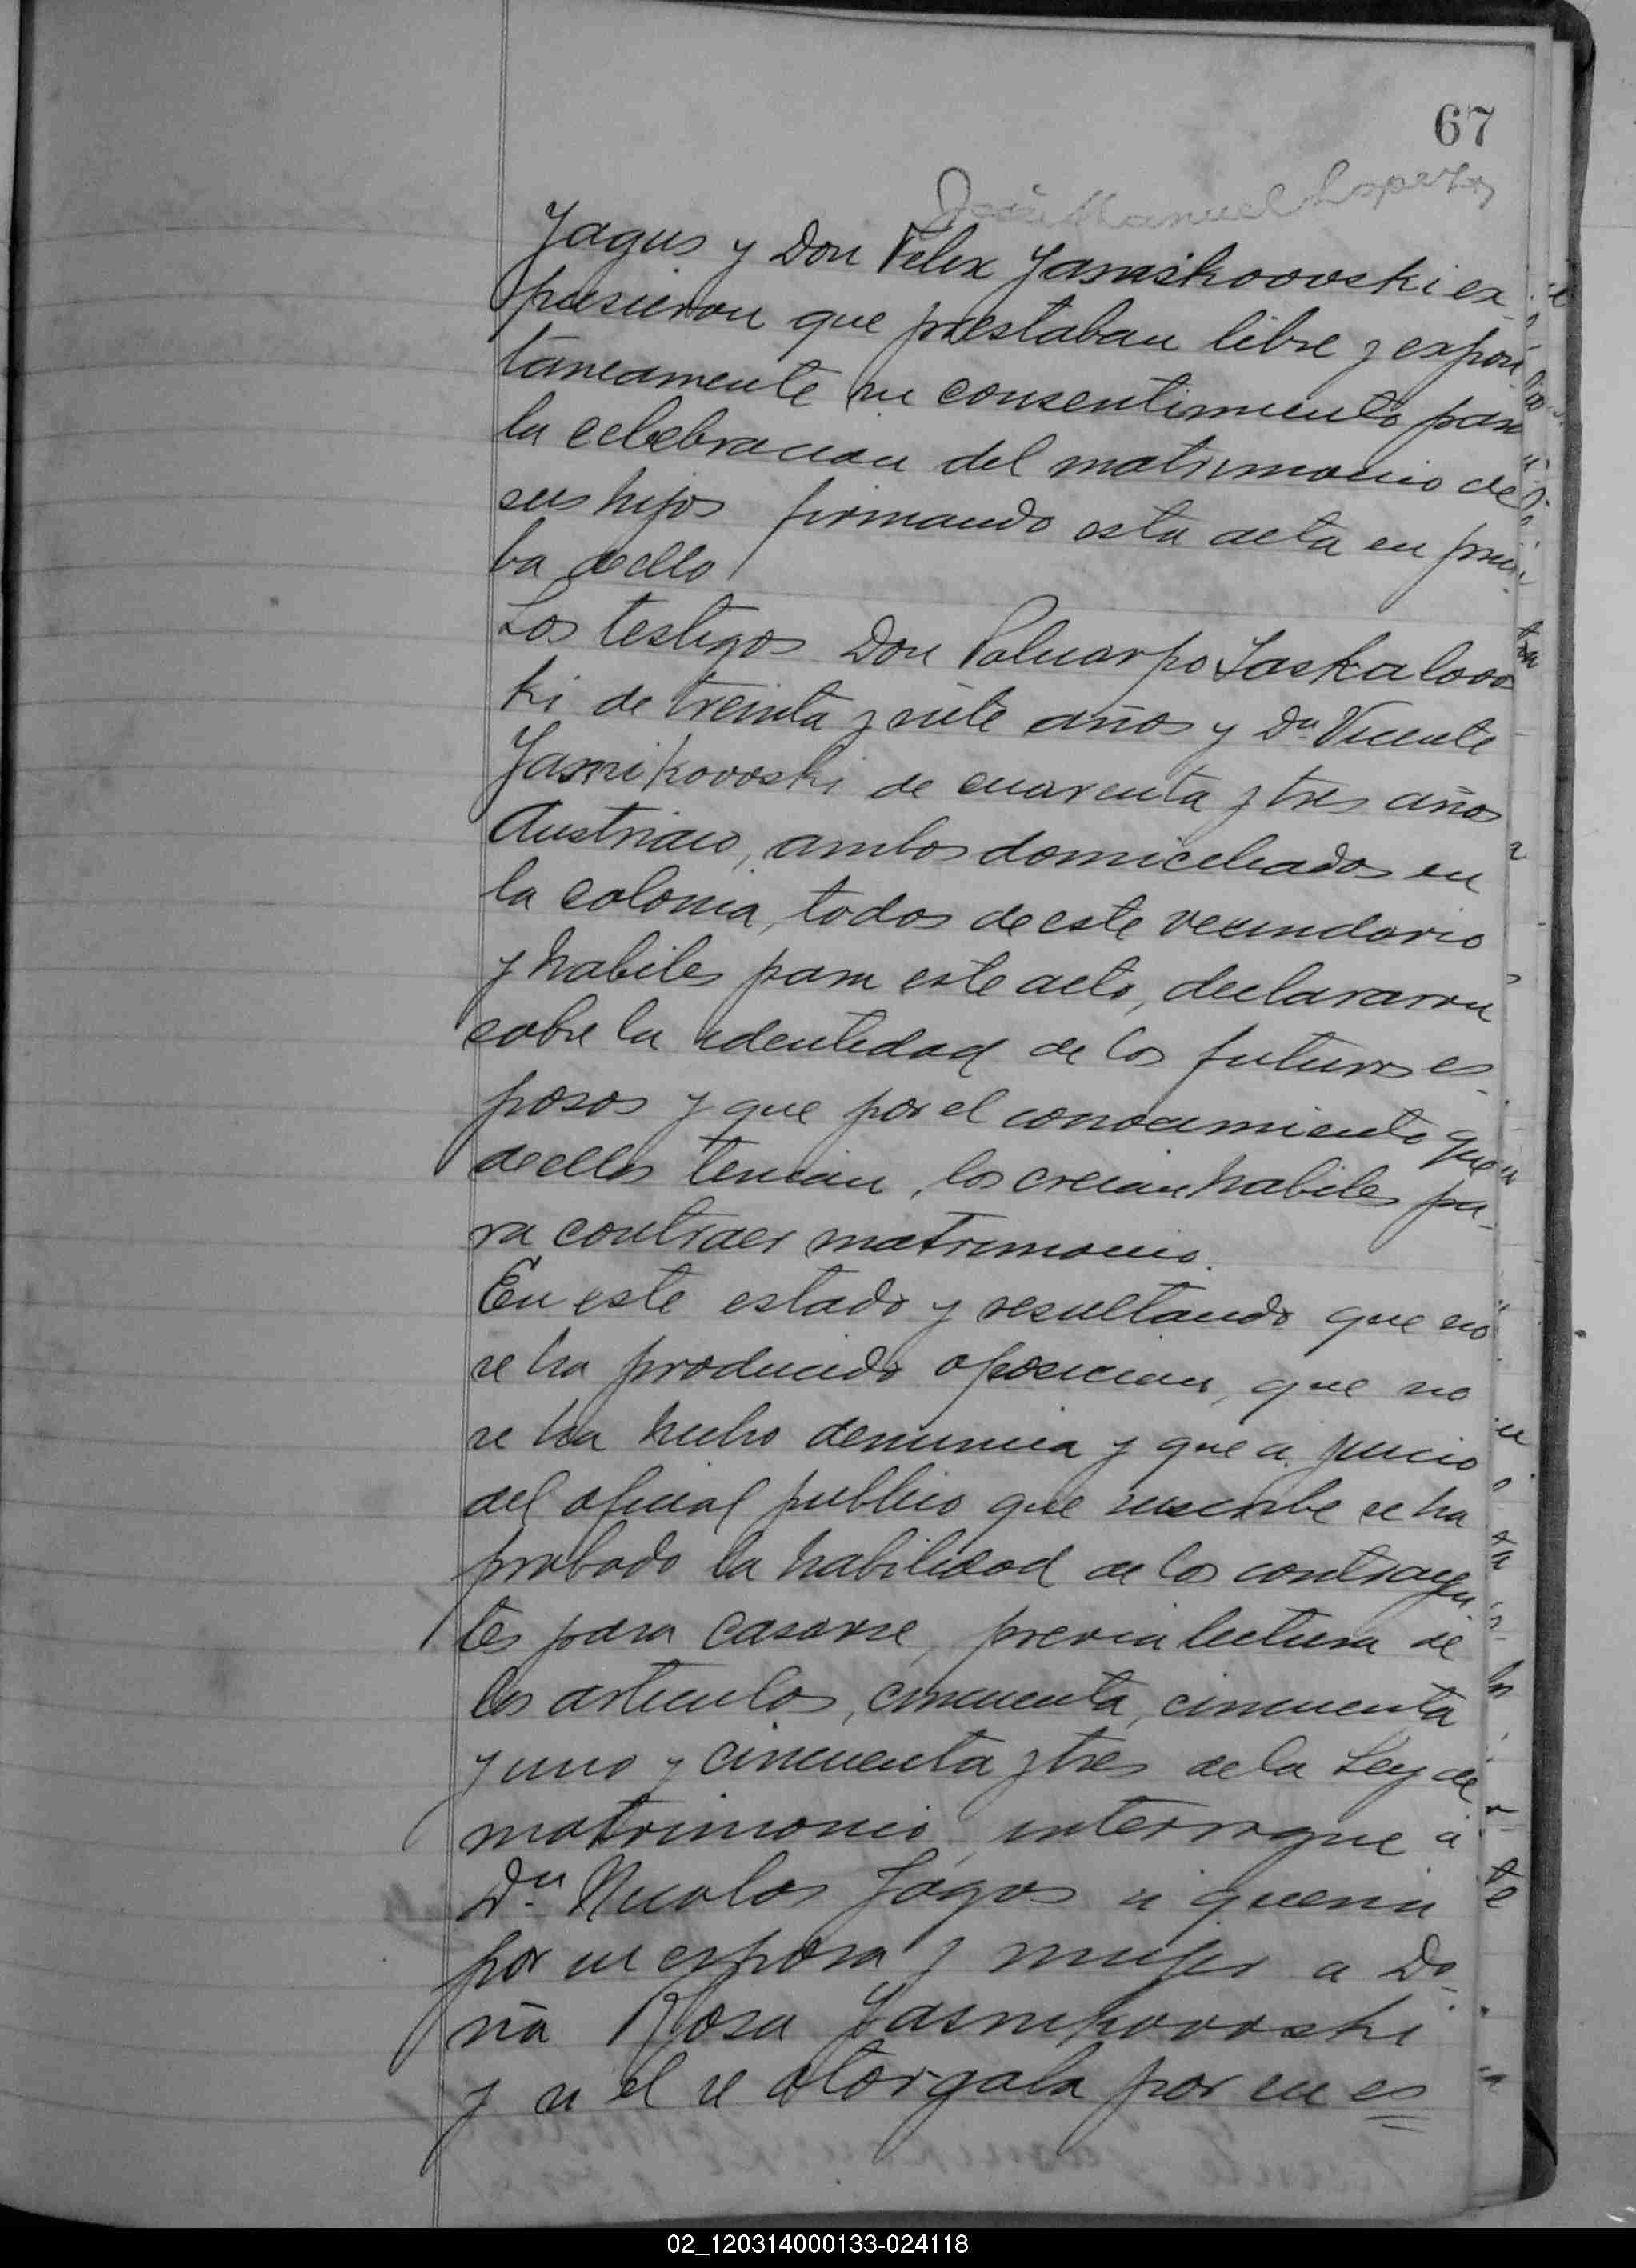 67
José Manuel Lopez
Jagus y Don Felix Jamskoovski ex-
pusieron que prestaban libre y expon
táneamente su consentimiento para
la celebracion del matrimonio de
sus hijos firmando esta acta en prue
ba de ello
Los testigos Don Policarpo Laskaloos
ki de treinta y siete años y Dn Vicente
Jasnikovoski de cuarenta y tres años
Austriaco, ambos domiciliados en
la colonia, todos de este vecindario
y habiles para este acto, declararon
sobre la identidad de los futuros es-
posos y que por el conocimiento que
de ellos tenian, los creian habiles pa-
ra contraer matrimonio.
En este estado y resultando que no
se ha producido oposicion, que no
se ha hecho denuncia y que a juicio
del oficial publico que suscribe se ha
probado la habilidad de los contrayen
tes para casarse, previa lectura de
los articulos, cincuenta, cincuenta
y uno y cincuenta y tres de la Ley de
matrimonio, interrogue á
Dn Nicolas Jagos si queria
por su esposa y mujer a Do-
ña Rosa Jasnikovoski
y si el se otorgaba por su es
02_120314000133-024118